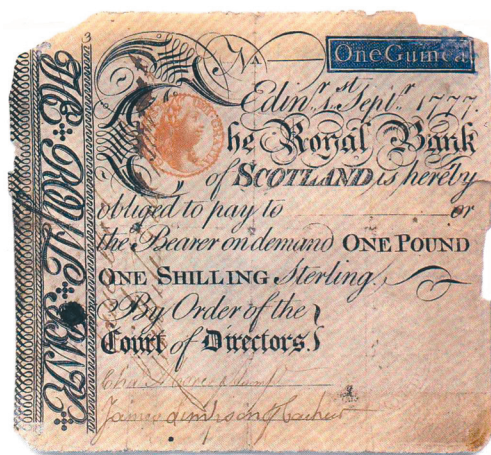 No
One Guinea
Edinr. 1st Septr. 1777.
The Royal Bank
of SCOTLAND is hereby
obliged to pay to or
the Bearer on demand ONE POUND
ONE SHILLING Sterling.
By Order of the
Court of Directors.
James
THE ROYAL BANK